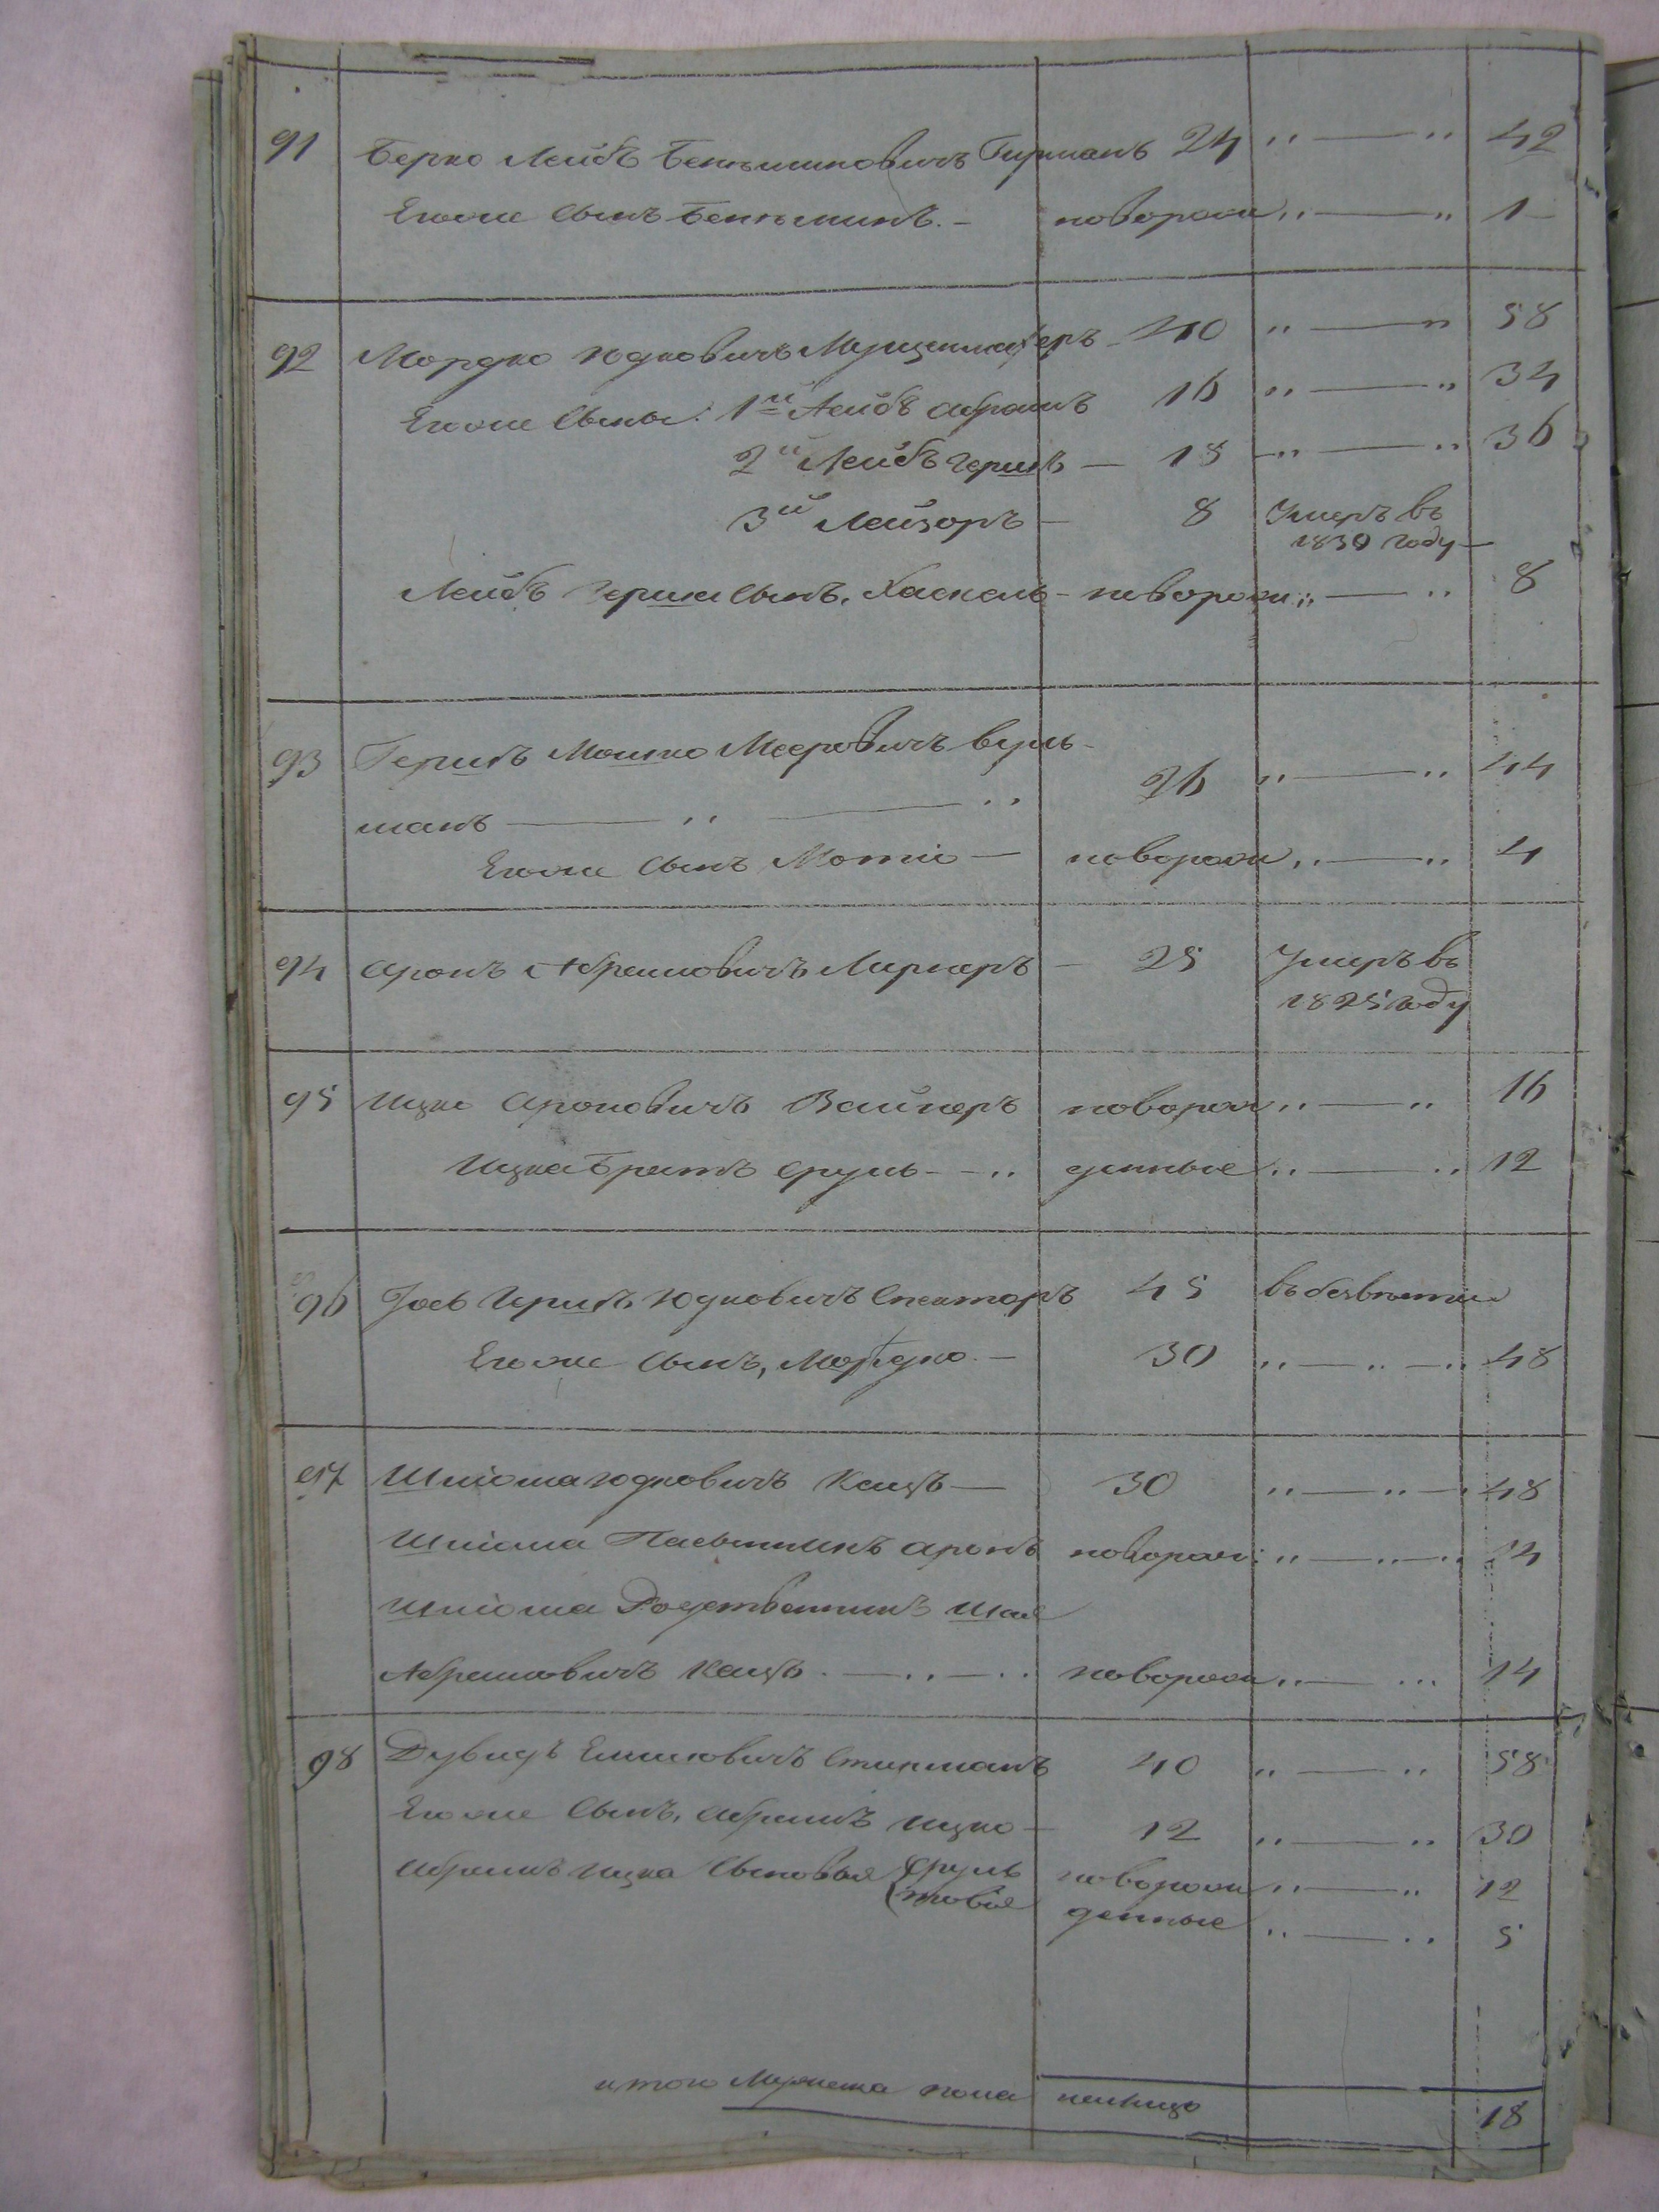 91 Берко Лейбъ Беньяминовичъ Гирманъ 24 „ — „ 42
Егоже Сынъ Беньминъ. — новорожд „ — „ 1
92 Мордко Юдковичъ 40 „ — „ 58
Егоже Сыны: 1й Лейбъ Абрамъ 16 „ — „ 34
2й Лейбъ Гершъ — 18 „ — „ 36
3й Лейзоръ — 8 Умеръ въ
1830 году —
Лейбъ Герша Сынъ, Хаскель — новорожд „ — „ 8
93 Гершъ Мошко Мееровичъ Вуль-
манъ — „ — „ 26 „ — „ 44
Егоже Сынъ Мотіо — новорожд „ — „ 4
94 Аронъ Абрамовичъ Лернеръ — 25 Умеръ въ
1825 году
95 Ицко Ароновичъ Вайнеръ новорож „ — „ 16
Ицка Братъ Сруль — „ денные „ — „ 12
96 Іось Гершъ Юдковичъ Спекторъ 45 въ безвѣстни
Егоже Сынъ, Мордко. — 30 „ — „ — „ 48
97 Шліома Юдковичъ Кацъ — 30 „ — „ — „ 48
Шліома Племянникъ Аронъ новорож: „ — „ — „ 14
Шліома Родственникъ Шая
Абрамовичъ Кацъ. — „ — „ новорожд „ — „ 14
98 Дувидъ Еликовичъ Стикманъ 40 „ — „ 58
Егоже Сынъ, Абрамъ Ицко — 12 „ — „ 30
Абрамъ Ицка Сыновья Сруль новорожд „ — „ 12
Товіе денные „ — „ 5
итого Мужеска пола наличнo 18